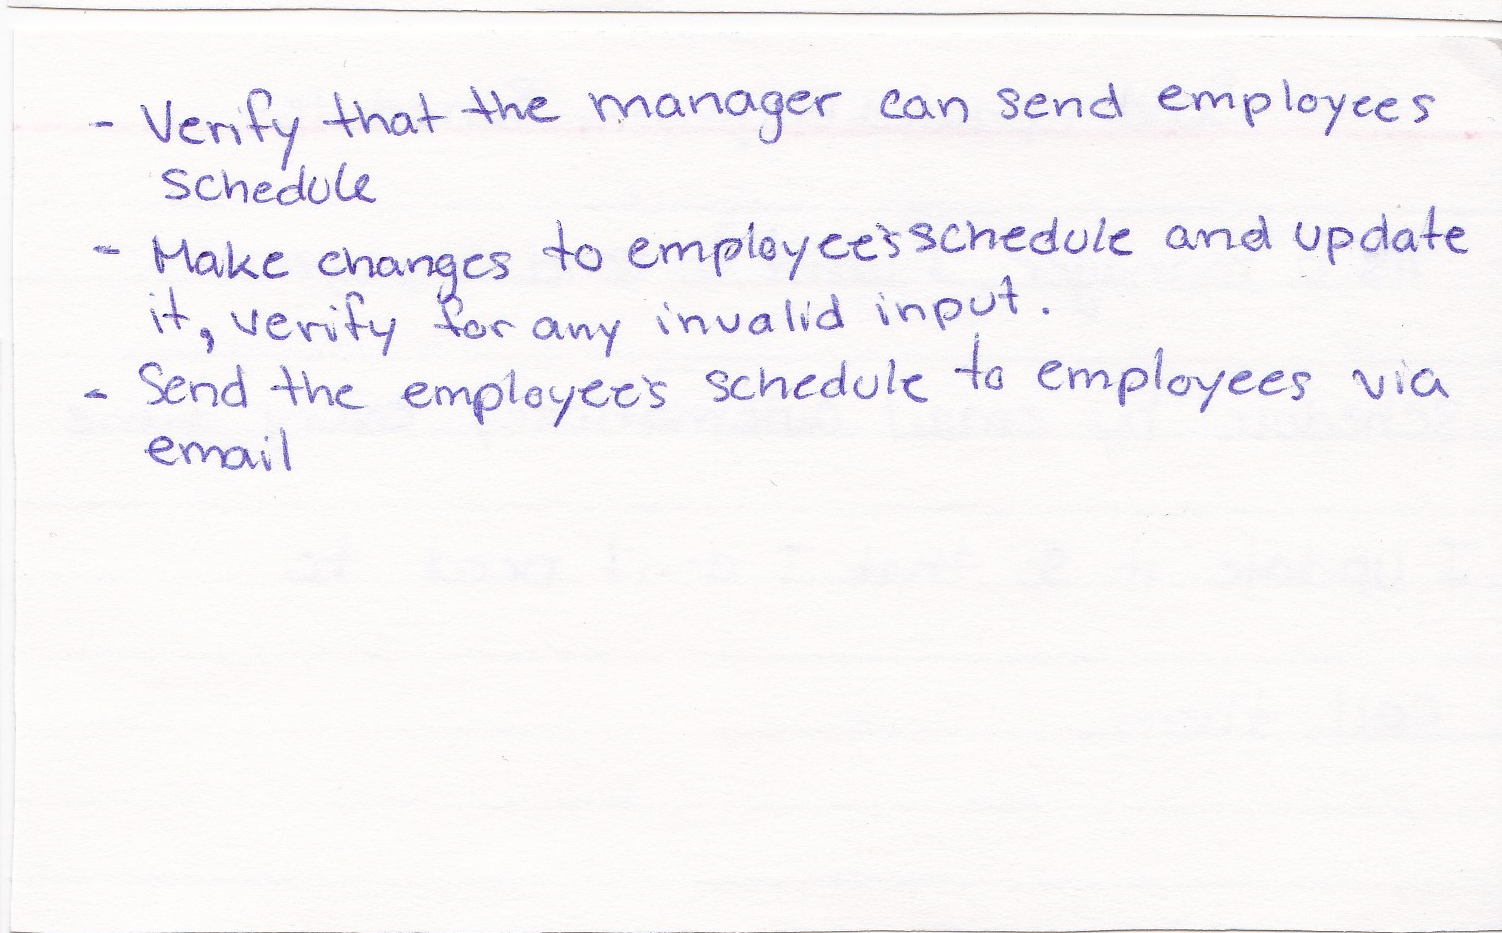 - Verify that the manager can send employees
schedule
- Make changes to employee's schedule and update
it, verify for any invalid input.
- Send the employee's schedule to employees via
email